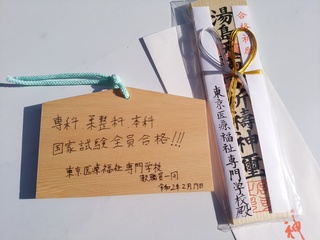 専科、柔整科、本科
国家試験全員合格!!!
東京医療福祉専門学校
教職員一同
令和2年2月17日
合格祈
湯島
祈祷神璽
東京医療福祉専門学校殿
神